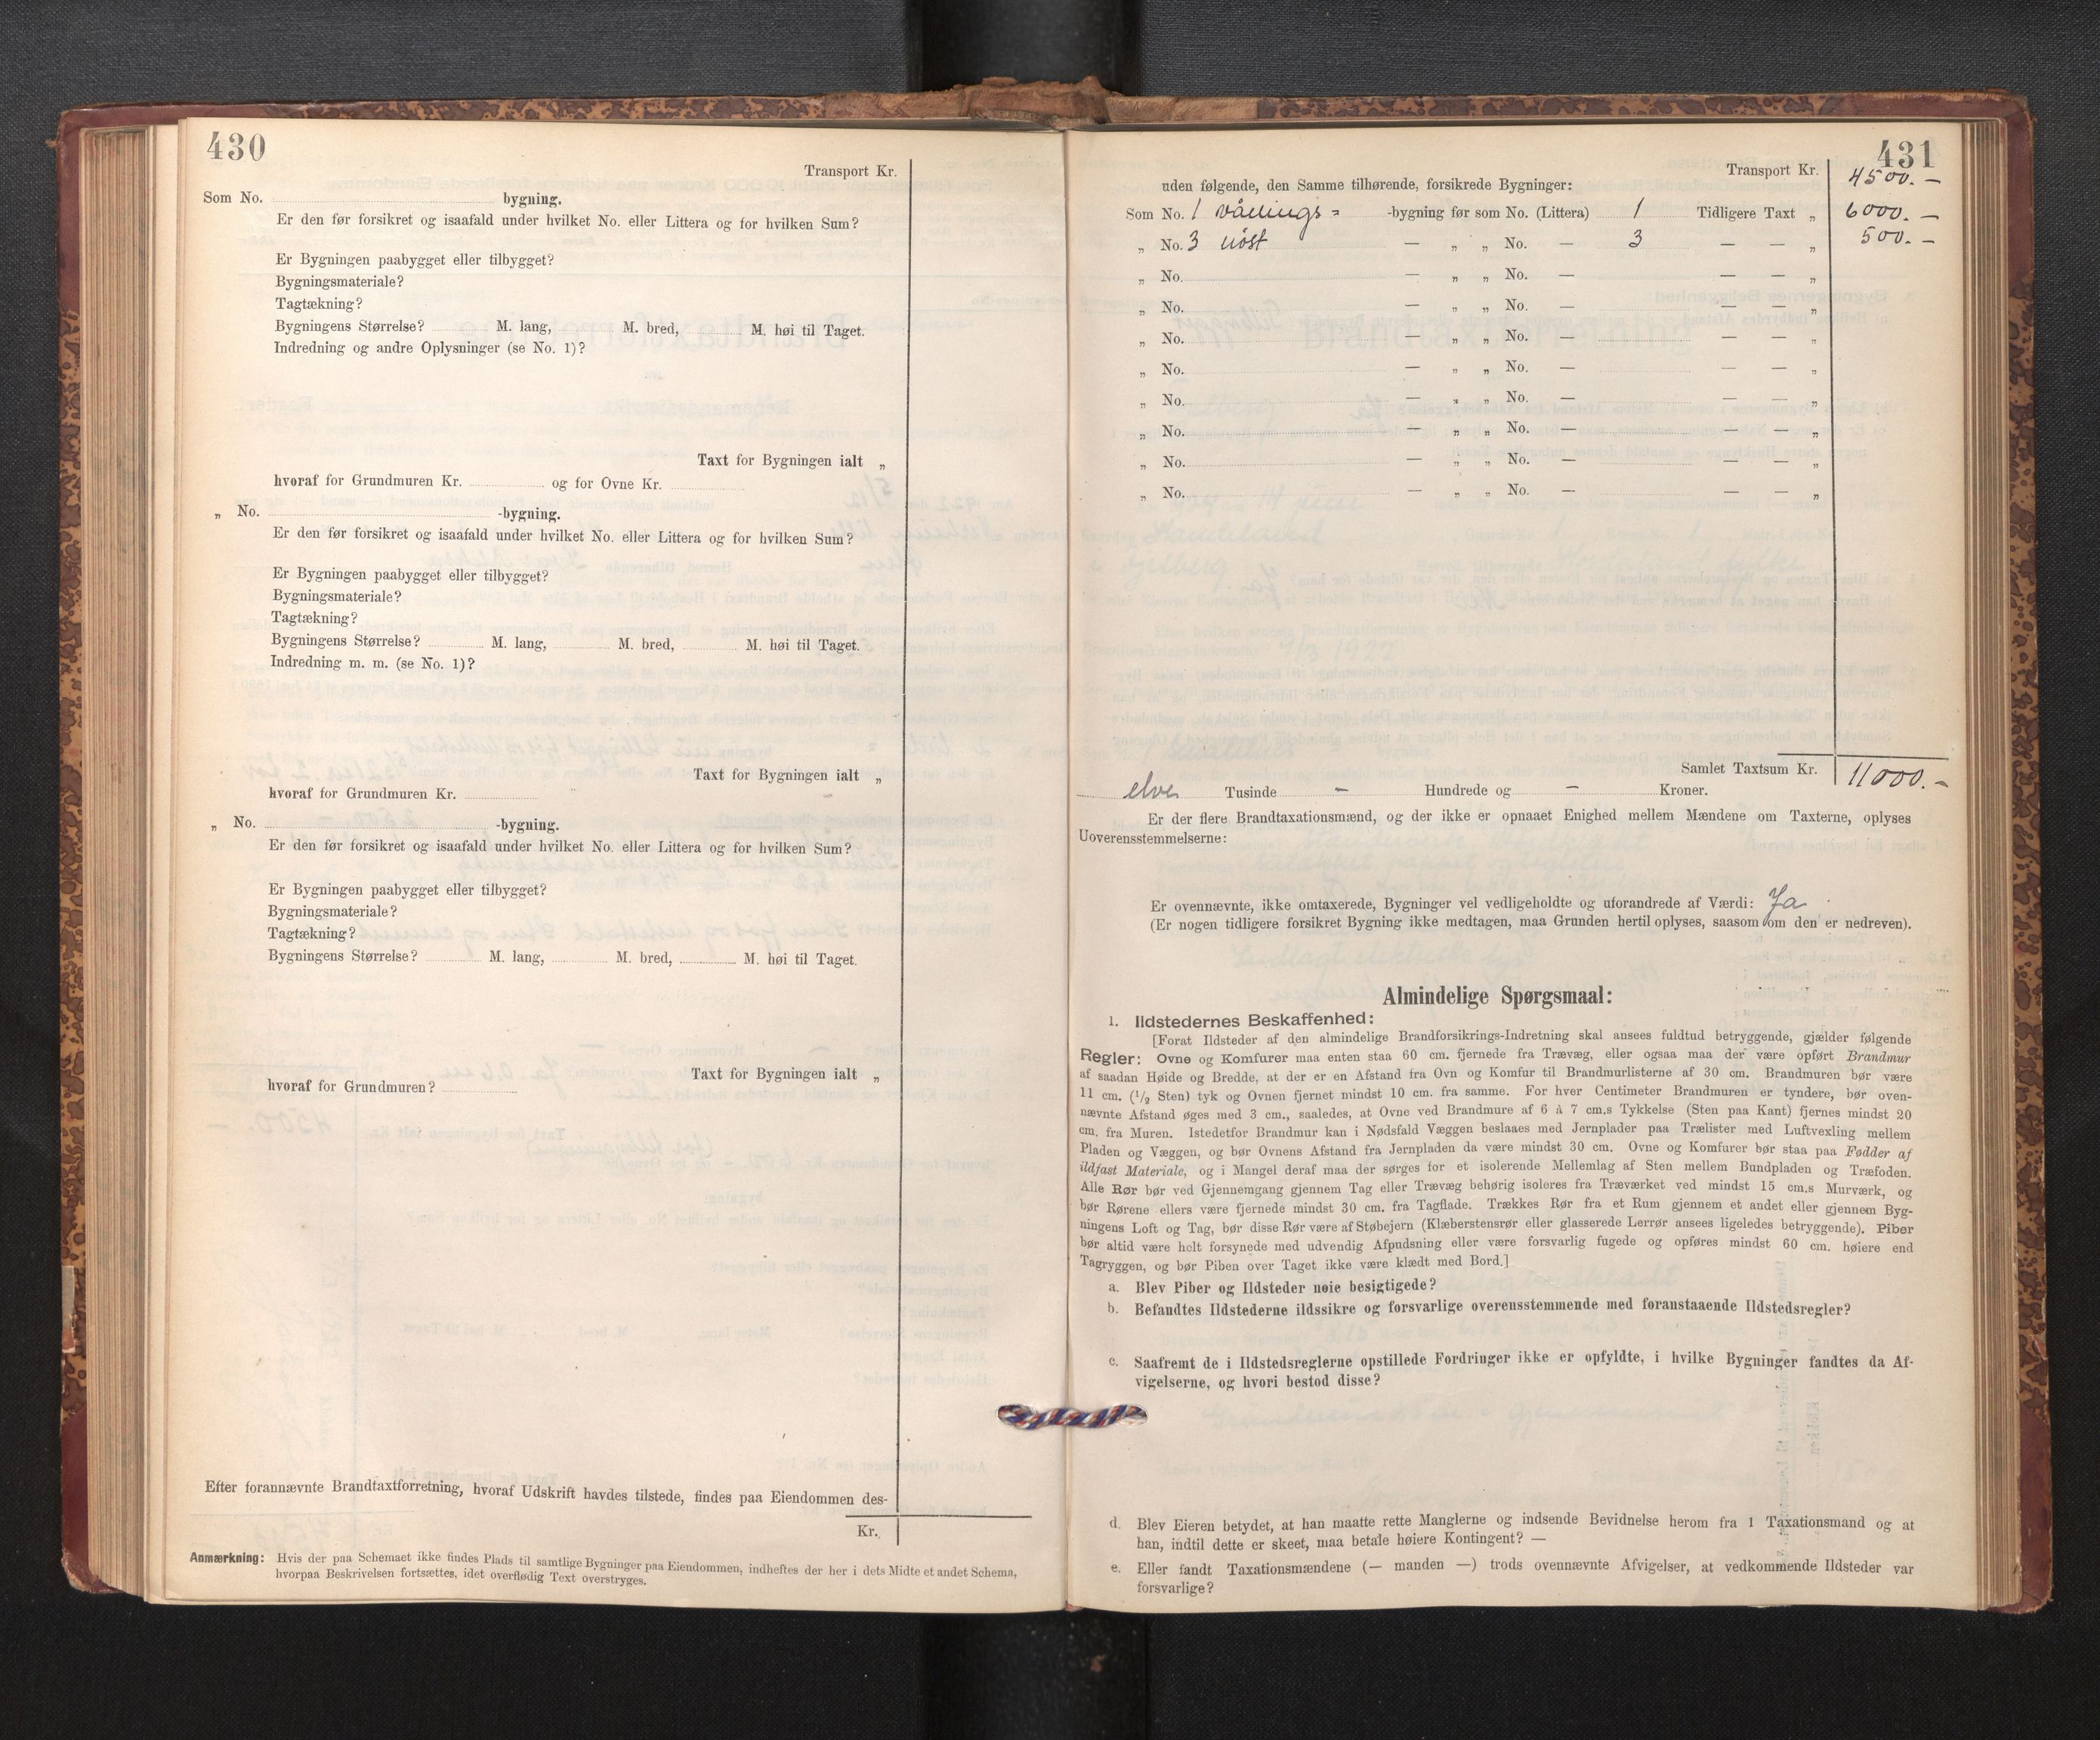 430
Transport Kr.
Som No. bygning.
Er den før forsikret og isaafald under hvilket No. eller Littera og for hvilken Sum?
Er Bygningen paabygget eller tilbygget?
Bygningsmateriale?
Tagtækning?
Bygningens Størrelse? M. lang, M. bred, M. høi til Taget.
Indredning og andre Oplysninger (se No. 1)?
Taxt for Bygningen ialt „
hvoraf for Grundmuren Kr. og for Ovne Kr.
„ No. -bygning.
Er den før forsikret og isaafald under hvilket No. eller Littera og for hvilken Sum?
Er Bygningen paabygget eller tilbygget?
Bygningsmateriale?
Tagtækning?
Bygningens Størrelse? M. lang, M. bred, M. høi til Taget.
Indredning m. m. (se No. 1)?
Taxt for Bygningen ialt „
hvoraf for Grundmuren Kr.
„ No. -bygning.
Er den før forsikret og isaafald under hvilket No. eller Littera og for hvilken Sum?
Er Bygningen paabygget eller tilbygget?
Bygningsmateriale?
Tagtækning?
Bygningens Størrelse? M. lang, M. bred, M. høi til Taget.
Taxt for Bygningen ialt „
hvoraf for Grundmuren?
Efter forannævnte Brandtaxtforretning, hvoraf Udskrift havdes tilstede, findes paa Eiendommen des-
Kr.
Anmærkning: Hvis der paa Schemaet ikke findes Plads til samtlige Bygninger paa Eiendommen, indheftes der her i dets Midte et andet Schema,
hvorpaa Beskrivelsen fortsættes, idet overflødig Text overstryges.
431
Transport Kr. 4500.—
uden følgende, den Samme tilhørende, forsikrede Bygninger:
Som No. 1 vånings= -bygning før som No. (Littera) 1 Tidligere Taxt „ 6000.—
„ No. 3 nöst — „ „ No. — 3 — — „ 500.—
„ No. — „ „ No. — — — „
„ No. — „ „ No. — — — „
„ No. — „ „ No. — — — „
„ No. — „ „ No. — — — „
„ No. — „ „ No. — — — „
„ No. — „ „ No. — — — „
„ No. — „ „ No. — — — „
„ No. — „ „ No. — — — „
Samlet Taxtsum Kr. 11000.—
elve Tusinde — Hundrede og — Kroner.
Er der flere Brandtaxationsmænd, og der ikke er opnaaet Enighed mellem Mændene om Taxterne, oplyses
Uoverensstemmelserne:
Er ovennævnte, ikke omtaxerede, Bygninger vel vedligeholdte og uforandrede af Værdi: Ja
(Er nogen tidligere forsikret Bygning ikke medtagen, maa Grunden hertil oplyses, saasom om den er nedreven).
Almindelige Spørgsmaal:
1. Ildstedernes Beskaffenhed:
[Forat Ildsteder af den almindelige Brandforsikrings-Indretning skal ansees fuldtud betryggende, gjælder følgende
Regler: Ovne og Komfurer maa enten staa 60 cm. fjernede fra Trævæg, eller ogsaa maa der være opført Brandmur
af saadan Høide og Bredde, at der er en Afstand fra Ovn og Komfur til Brandmurlisterne af 30 cm. Brandmuren bør være
11 cm. (1/2 Sten) tyk og Ovnen fjernet mindst 10 cm. fra samme. For hver Centimeter Brandmuren er tyndere, bør oven-
nævnte Afstand øges med 3 cm., saaledes, at Ovne ved Brandmure af 6 à 7 cm.s Tykkelse (Sten paa Kant) fjernes mindst 20
cm. fra Muren. Istedetfor Brandmur kan i Nødsfald Væggen beslaaes med Jernplader paa Trælister med Luftvexling mellem
Pladen og Væggen, og bør Ovnens Afstand fra Jernpladen da være mindst 30 cm. Ovne og Komfurer bør staa paa Fødder af
ildfast Materiale, og i Mangel deraf maa der sørges for et isolerende Mellemlag af Sten mellem Bundpladen og Træfoden.
Alle Rør bør ved Gjennemgang gjennem Tag eller Trævæg behørig isoleres fra Træværket ved mindst 15 cm.s Murværk, og
bør Rørene ellers være fjernede mindst 30 cm. fra Tagflade. Trækkes Rør fra et Rum gjennem et andet eller gjennem Byg-
ningens Loft og Tag, bør disse Rør være af Støbejern (Klæberstensrør eller glasserede Lerrør ansees ligeledes betryggende). Piber
bør altid være helt forsynede med udvendig Afpudsning eller være forsvarlig fugede og opføres mindst 60 cm. høiere end
Tagryggen, og bør Piben over Taget ikke være klædt med Bord.]
a. Blev Piber og Ildsteder nøie besigtigede?
b. Befandtes Ildstederne ildssikre og forsvarlige overensstemmende med foranstaaende Ildstedsregler?
c. Saafremt de i Ildstedsreglerne opstillede Fordringer ikke er opfyldte, i hvilke Bygninger fandtes da Af-
vigelserne, og hvori bestod disse?
d. Blev Eieren betydet, at han maatte rette Manglerne og indsende Bevidnelse herom fra 1 Taxationsmand og at
han, indtil dette er skeet, maa betale høiere Kontingent? —
e. Eller fandt Taxationsmændene (— manden —) trods ovennævnte Afvigelser, at vedkommende Ildsteder var
forsvarlige?